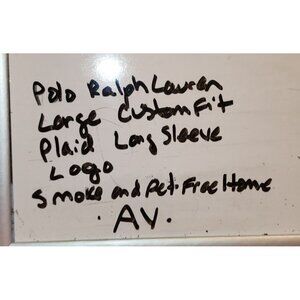 Polo Ralph Lauren
Large Custom Fit
Plaid Long Sleeve
Logo
Smoke and Pet-Free Home
. AV.